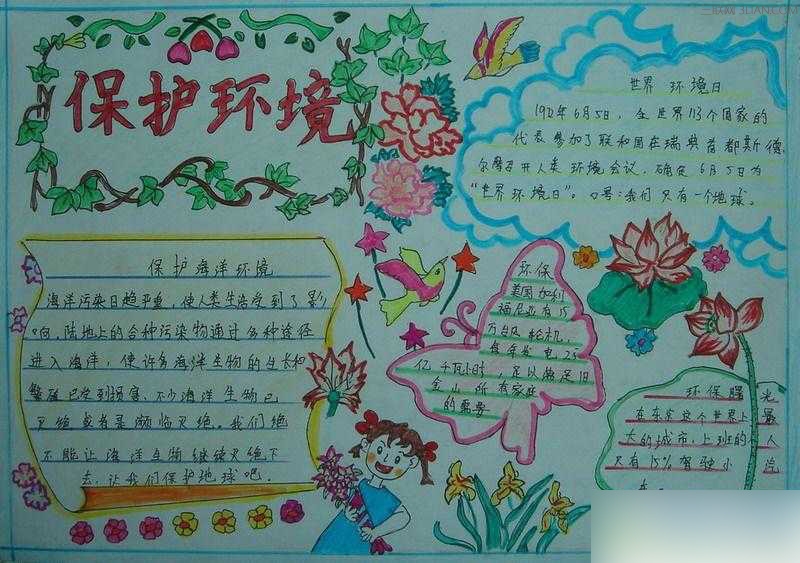 保护环境
世界 环境日
1972年6月5日,全世界113个国家的
代表参加了联和国在瑞典首都斯德
尔摩召开人类环境会议。确定6月5日为
"世界环境日"。口号:我们只有一个地球。
保护海洋环境
海洋污染日趋严重,使人类生活受到了影
响,陆地上的各种污染物通过多种途径
进入海洋,使许多海洋生物的生长和
繁殖已受到损害,不少海洋生物已
灭绝或者是濒临灭绝。我们绝
不能让海洋生物继续灭绝下
去,让我们保护地球吧。
环保
美国加利
福尼亚有15
万台风轮机,
每年发电25
亿千瓦小时,足以满足旧
金山所有家庭
的需要
环保曙光
在东京这个世界上最
大的城市,上班的人
只有15%驾驶小
车。